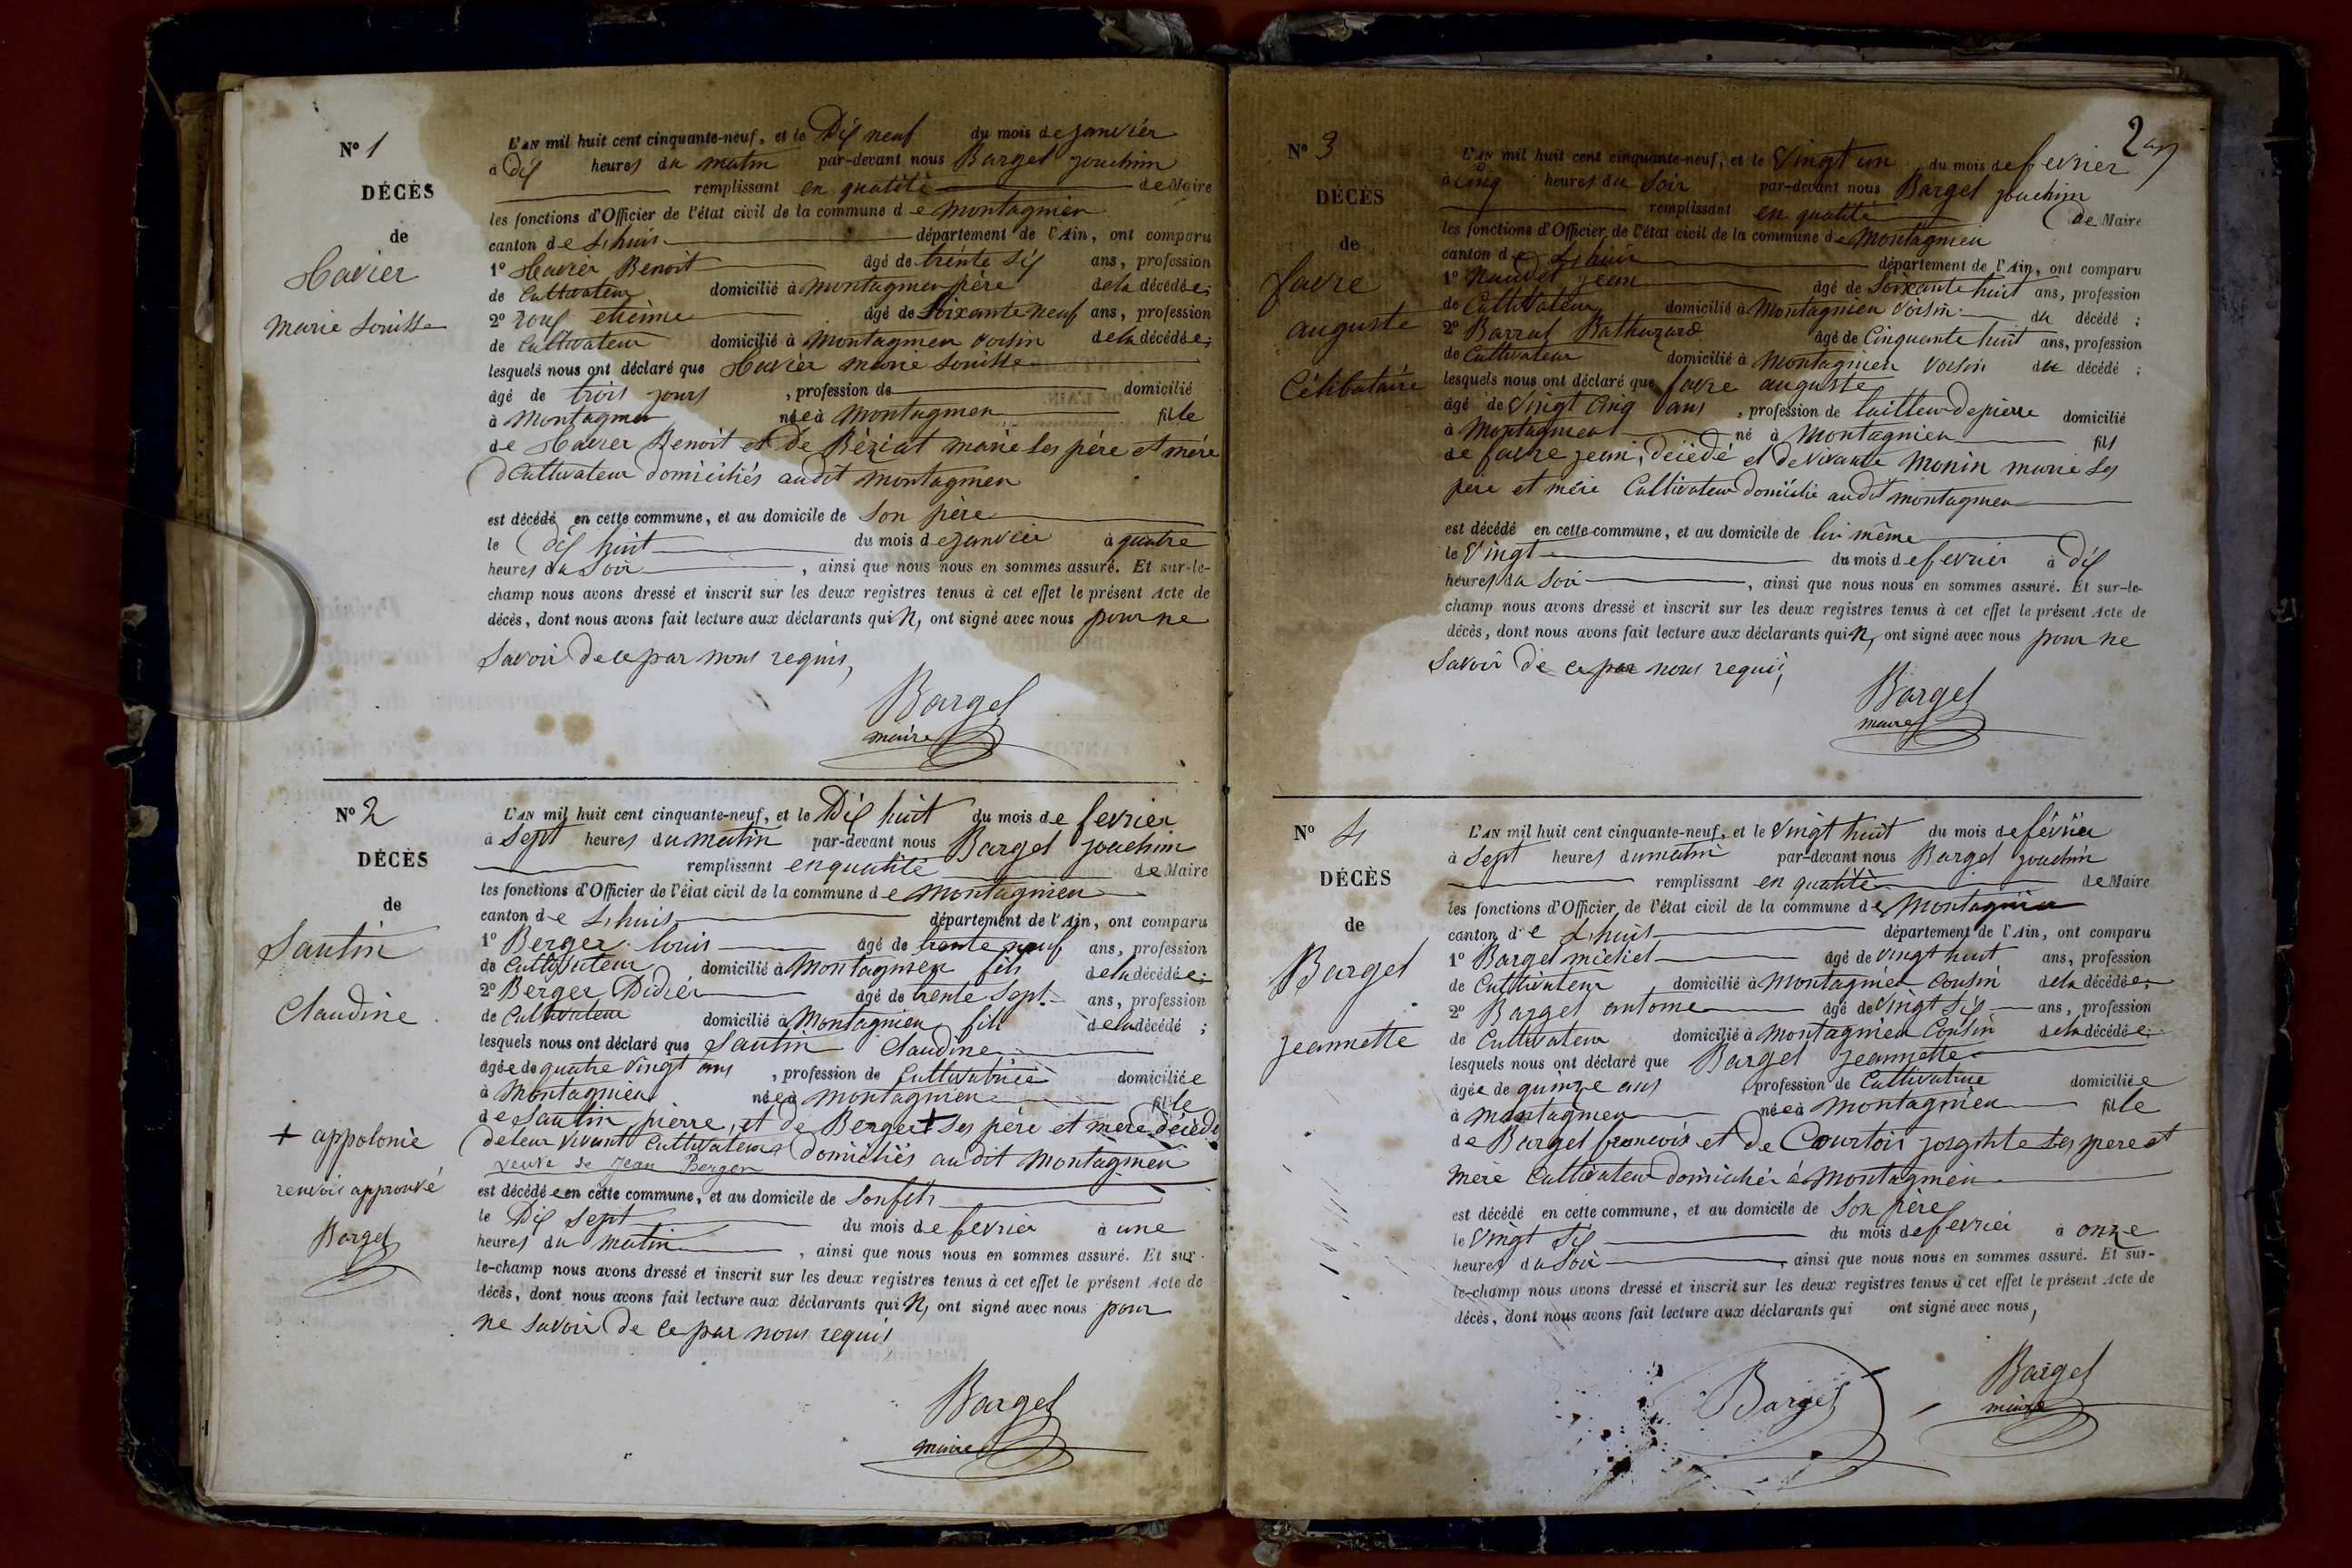 N° 1
DÉCÈS
de
Havier
Marie Louisse
L'AN mil huit cent cinquante-neuf, et le Dix neuf du mois de janvier
à Dix heures du matin par-devant nous Barget joachim
remplissant en qualité de Maire
les fonctions d'Officier de l'état civil de la commune de Montagnieu
canton de Lhuis département de l'Ain, ont comparu
1° Havier Benoit âgé de trente six ans, profession
de Cultivateur domicilié à Montagnieu père de la décédée;
2° roux etienne âgé de Soixante neuf ans, profession
de Cultivateur domicilié à Montagnieu voisin de la décédée;
lesquels nous ont déclaré que Havier marie Louisse
âgé de trois jours , profession de domicilié
à Montagnieu née à Montagnieu fille
de Havier Benoit et de Béziat marie ses père et mère
Cultivateur domiciliés audit montagnieu
est décédé en cette commune, et au domicile de Son père
le Dix huit du mois de janvier à quatre
heures du Soir , ainsi que nous nous en sommes assuré. Et sur-le-
champ nous avons dressé et inscrit sur les deux registres tenus à cet effet le présent Acte de
décès, dont nous avons fait lecture aux déclarants qui N, ont signé avec nous pour ne
Savoir de ce par nous requis,
Barget
maire
N° 2
DÉCÈS
de
Sautin
Claudine
+ appolonie
renvoi approuvé
Barget
L'AN mil huit cent cinquante-neuf, et le Dix huit du mois de fevrier
à Sept heures du matin par-devant nous Barget joachim
remplissant en qualité de Maire
les fonctions d'Officier de l'état civil de la commune de Montagnieu
canton de Lhuis département de l'Ain, ont comparu
1° Berger louis âgé de trente neuf ans, profession
de Cultivateur domicilié à Montagnieu fils de la décédée;
2° Berger Didier âgé de trente Sept ans, profession
de Cultivateur domicilié à Montagnieu fils de la décédé;
lesquels nous ont déclaré que Sautin Claudine
âgée de quatre Vingt ans , profession de Cultivatrice domiciliée
à Montagnieu née à montagnieu fille
de Sautin pierre, et de Berger + ses père et mère décédé
de leur vivant Cultivateurs domiciliés audit Montagnieu
veuve de Jean Berger
est décédée en cette commune, et au domicile de Son fils
le Dix Sept du mois de fevrier à une
heures du matin , ainsi que nous nous en sommes assuré. Et sur-
le-champ nous avons dressé et inscrit sur les deux registres tenus à cet effet le présent Acte de
décès, dont nous avons fait lecture aux déclarants qui N, ont signé avec nous pour
ne Savoir de ce par nous requis,
Barget
maire
2
N° 3
DÉCÈS
de
favre
auguste
Célibataire
L'AN mil huit cent cinquante-neuf, et le Vingt un du mois de fevrier
à Cinq heures du Soir par-devant nous Barget joachim
remplissant en qualité de Maire
les fonctions d'Officier de l'état civil de la commune de Montagnieu
canton de Lhuis département de l'Ain, ont comparu
1° Naudet jean âgé de Soixante huit ans, profession
de Cultivateur domicilié à Montagnieu voisin du décédé;
2° Barral Balthazard âgé de Cinquante huit ans, profession
de Cultivateur domicilié à Montagnieu voisin du décédé;
lesquels nous ont déclaré que favre auguste
âgé de Vingt Cinq ans , profession de tailleur de pierre domicilié
à Montagnieu né à Montagnieu fils
de favre jean, décédé et de vivante Monin marie Ses
père et mère Cultivateur domicilié audit montagnieu
est décédé en cette commune, et au domicile de lui même
le Vingt du mois de fevrier à dix
heures du Soir , ainsi que nous nous en sommes assuré. Et sur-le-
champ nous avons dressé et inscrit sur les deux registres tenus à cet effet le présent Acte de
décès, dont nous avons fait lecture aux déclarants qui N, ont signé avec nous pour ne
Savoir de ce par nous requis,
Barget
maire
N° 4
DÉCÈS
de
Barget
jeannette
L'AN mil huit cent cinquante-neuf, et le Vingt huit du mois de février
à Sept heures du matin par-devant nous Barget joachim
remplissant en qualité de Maire
les fonctions d'Officier de l'état civil de la commune de Montagnieu
canton de Lhuis département de l'Ain, ont comparu
1° Barget michel âgé de vingt huit ans, profession
de Cultivateur domicilié à Montagnieu Cousin de la décédée;
2° Barget antoine âgé de Vingt Six ans, profession
de Cultivateur domicilié à Montagnieu Cousin de la décédée;
lesquels nous ont déclaré que Barget jeannette
âgée de quinze ans , profession de Cultivatrice domiciliée
à montagnieu née à Montagnieu fille
de Barget francois et de Courtois josephte Ses père et
mère Cultivateur domiciliés à Montagnieu
est décédé en cette commune, et au domicile de Son père
le Vingt Six du mois de fevrier à onze
heures du Soir , ainsi que nous nous en sommes assuré. Et sur-
le-champ nous avons dressé et inscrit sur les deux registres tenus à cet effet le présent Acte de
décès, dont nous avons fait lecture aux déclarants qui ont signé avec nous,
Barget
Barget
maire